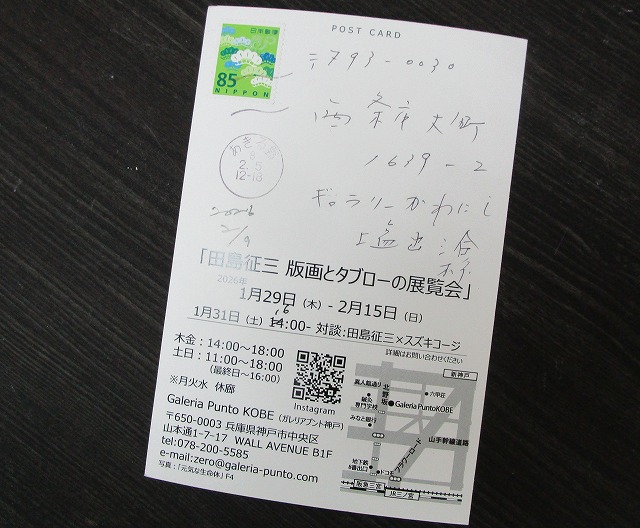 POST CARD
日本郵便
85
NIPPON
〒793-0030
西条市大町
1639-2
ギャラリーかわにし
あきる野
8.
2.5
12-18
2026
2/9
「田島征三 版画とタブローの展覧会」
2026年
1月29日（木）- 2月15日（日）
1月31日（土）16:00- 対談:田島征三×スズキコージ
詳細はお問い合わせください
木金：14:00～18:00
土日：11:00～18:00
（最終日～16:00）
※月火水 休廊
Instagram
Galeria Punto KOBE（ガレリアプント神戸）
〒650-0003 兵庫県神戸市中央区
山本通1-7-17 WALL AVENUE B1F
tel:078-200-5585
e-mail:zero@galeria-punto.com
写真：「元気な生命体」F4
新神戸
異人館通り
北野坂
六甲荘
鍼灸専門学校
Galeria PuntoKOBE
みなと銀行
山手幹線道路
フラワーロード
地下鉄
8番出口
ドコモ
阪急三宮
JR三ノ宮